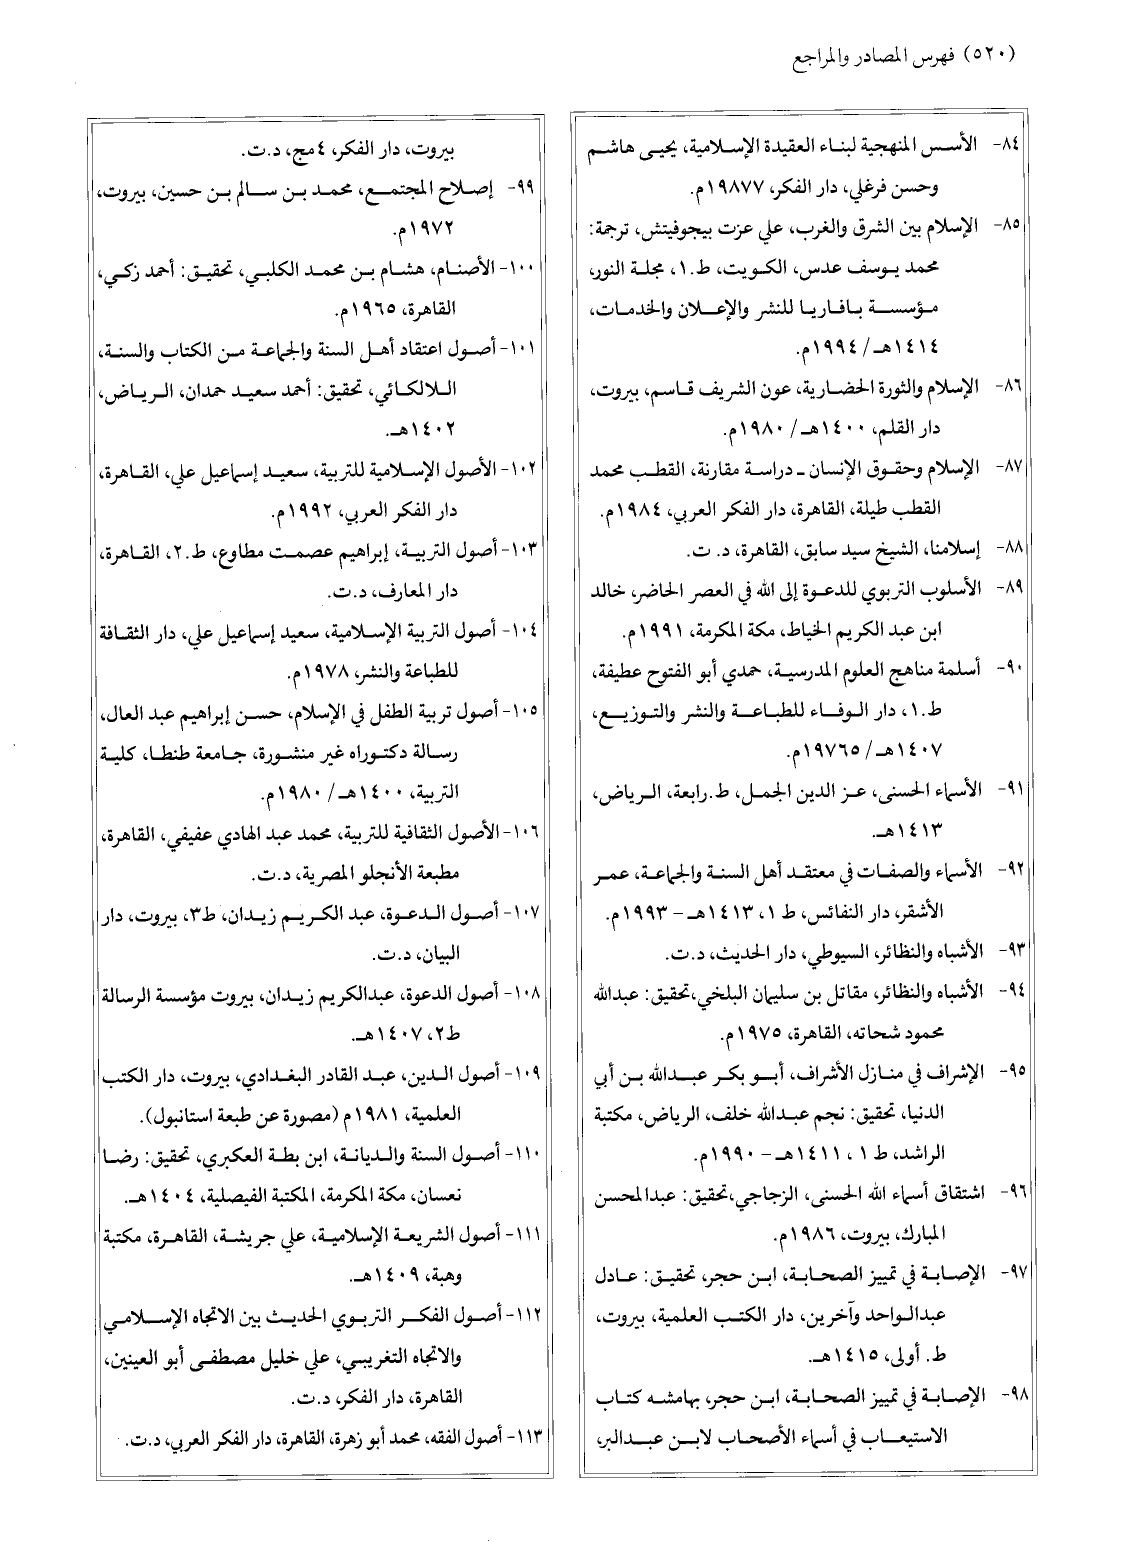 (٥٢٠) فهرس المصادر والمراجع
٨٤- الأسس المنهجية لبناء العقيدة الإسلامية، يحيى هاشم
وحسن فرغلي، دار الفكر، ١٩٨٧٧م.
٨٥- الإسلام بين الشرق والغرب، علي عزت بيجوفيتش، ترجمة:
محمد يوسف عدس، الكويت، ط.١، مجلة النور،
مؤسسة بافاريا للنشر والإعلان والخدمات،
١٤١٤هـ/ ١٩٩٤م.
٨٦- الإسلام والثورة الحضارية، عون الشريف قاسم، بيروت،
دار القلم، ١٤٠٠هـ/ ١٩٨٠م.
٨٧- الإسلام وحقوق الإنسان ـ دراسة مقارنة، القطب محمد
القطب طيلة، القاهرة، دار الفكر العربي، ١٩٨٤م.
٨٨- إسلامنا، الشيخ سيد سابق، القاهرة، د. ت.
٨٩- الأسلوب التربوي للدعوة إلى الله في العصر الحاضر، خالد
ابن عبد الكريم الخياط، مكة المكرمة، ١٩٩١م.
٩٠- أسلمة مناهج العلوم المدرسية، حمدي أبو الفتوح عطيفة،
ط.١، دار الوفاء للطباعة والنشر والتوزيع،
١٤٠٧هـ/ ١٩٧٦٥م.
٩١- الأسماء الحسنى، عز الدين الجمل، ط.رابعة، الرياض،
١٤١٣هـ.
٩٢- الأسماء والصفات في معتقد أهل السنة والجماعة، عمر
الأشقر، دار النفائس، ط ١، ١٤١٣هـ – ١٩٩٣م.
٩٣- الأشباه والنظائر، السيوطي، دار الحديث، د.ت.
٩٤- الأشباه والنظائر، مقاتل بن سليمان البلخي،تحقيق: عبدالله
محمود شحاته، القاهرة، ١٩٧٥م.
٩٥- الإشراف في منازل الأشراف، أبو بكر عبدالله بن أبي
الدنيا، تحقيق: نجم عبدالله خلف، الرياض، مكتبة
الراشد، ط ١ ، ١٤١١هـ – ١٩٩٠م.
٩٦- اشتقاق أسماء الله الحسنى، الزجاجي،تحقيق: عبدالمحسن
المبارك، بيروت، ١٩٨٦م.
٩٧- الإصابة في تمييز الصحابة، ابن حجر، تحقيق: عادل
عبدالواحد وآخرين، دار الكتب العلمية، بيروت،
ط. أولى، ١٤١٥هـ.
٩٨- الإصابة في تمييز الصحابة، ابن حجر، بهامشه كتاب
الاستيعاب في أسماء الأصحاب لابن عبدالبر،
بيروت، دار الفكر، ٤مج، د.ت.
٩٩- إصلاح المجتمع، محمد بن سالم بن حسين، بيروت،
١٩٧٢م.
١٠٠- الأصنام، هشام بن محمد الكلبي، تحقيق: أحمد زكي،
القاهرة، ١٩٦٥م.
١٠١- أصول اعتقاد أهل السنة والجماعة من الكتاب والسنة،
اللالكائي، تحقيق: أحمد سعيد حمدان، الرياض،
١٤٠٢هـ.
١٠٢- الأصول الإسلامية للتربية، سعيد إسماعيل علي، القاهرة،
دار الفكر العربي، ١٩٩٢م.
١٠٣- أصول التربية، إبراهيم عصمت مطاوع، ط.٢، القاهرة،
دار المعارف، د.ت.
١٠٤- أصول التربية الإسلامية، سعيد إسماعيل علي، دار الثقافة
للطباعة والنشر، ١٩٧٨م.
١٠٥- أصول تربية الطفل في الإسلام، حسن إبراهيم عبد العال،
رسالة دكتوراه غير منشورة، جامعة طنطا، كلية
التربية، ١٤٠٠هـ/ ١٩٨٠م.
١٠٦- الأصول الثقافية للتربية، محمد عبد الهادي عفيفي، القاهرة،
مطبعة الأنجلو المصرية، د.ت.
١٠٧- أصول الدعوة، عبد الكريم زيدان، ط٣، بيروت، دار
البيان، د.ت.
١٠٨- أصول الدعوة، عبدالكريم زيدان، بيروت مؤسسة الرسالة
ط٢، ١٤٠٧هـ.
١٠٩- أصول الدين، عبد القادر البغدادي، بيروت، دار الكتب
العلمية، ١٩٨١م (مصورة عن طبعة استانبول).
١١٠- أصول السنة والديانة، ابن بطة العكبري، تحقيق: رضا
نعسان، مكة المكرمة، المكتبة الفيصلية، ١٤٠٤هـ.
١١١- أصول الشريعة الإسلامية، علي جريشة، القاهرة، مكتبة
وهبة، ١٤٠٩هـ.
١١٢- أصول الفكر التربوي الحديث بين الاتجاه الإسلامي
والاتجاه التغريبي، علي خليل مصطفى أبو العينين،
القاهرة، دار الفكر، د.ت.
١١٣- أصول الفقه، محمد أبو زهرة، القاهرة، دار الفكر العربي، د.ت.